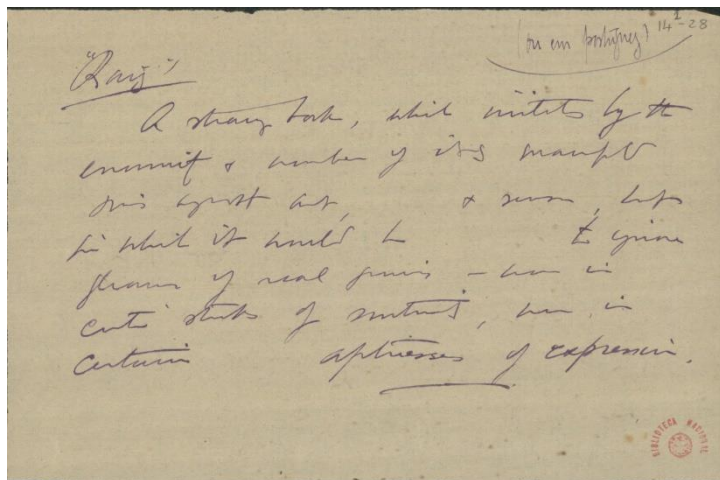 (ou em português) 14¹-28
"Raiz"
A strange book, which irritates by the
enormity & number of its
sins against art, & reason, but
in which it would be to ignore
gleams of real genius — now in
certain strokes of, now in
certain aptnesses of expression.
BIBLIOTECA NACIONAL